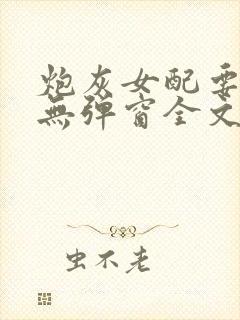 炮灰女配要
無彈窗全文
虫不老